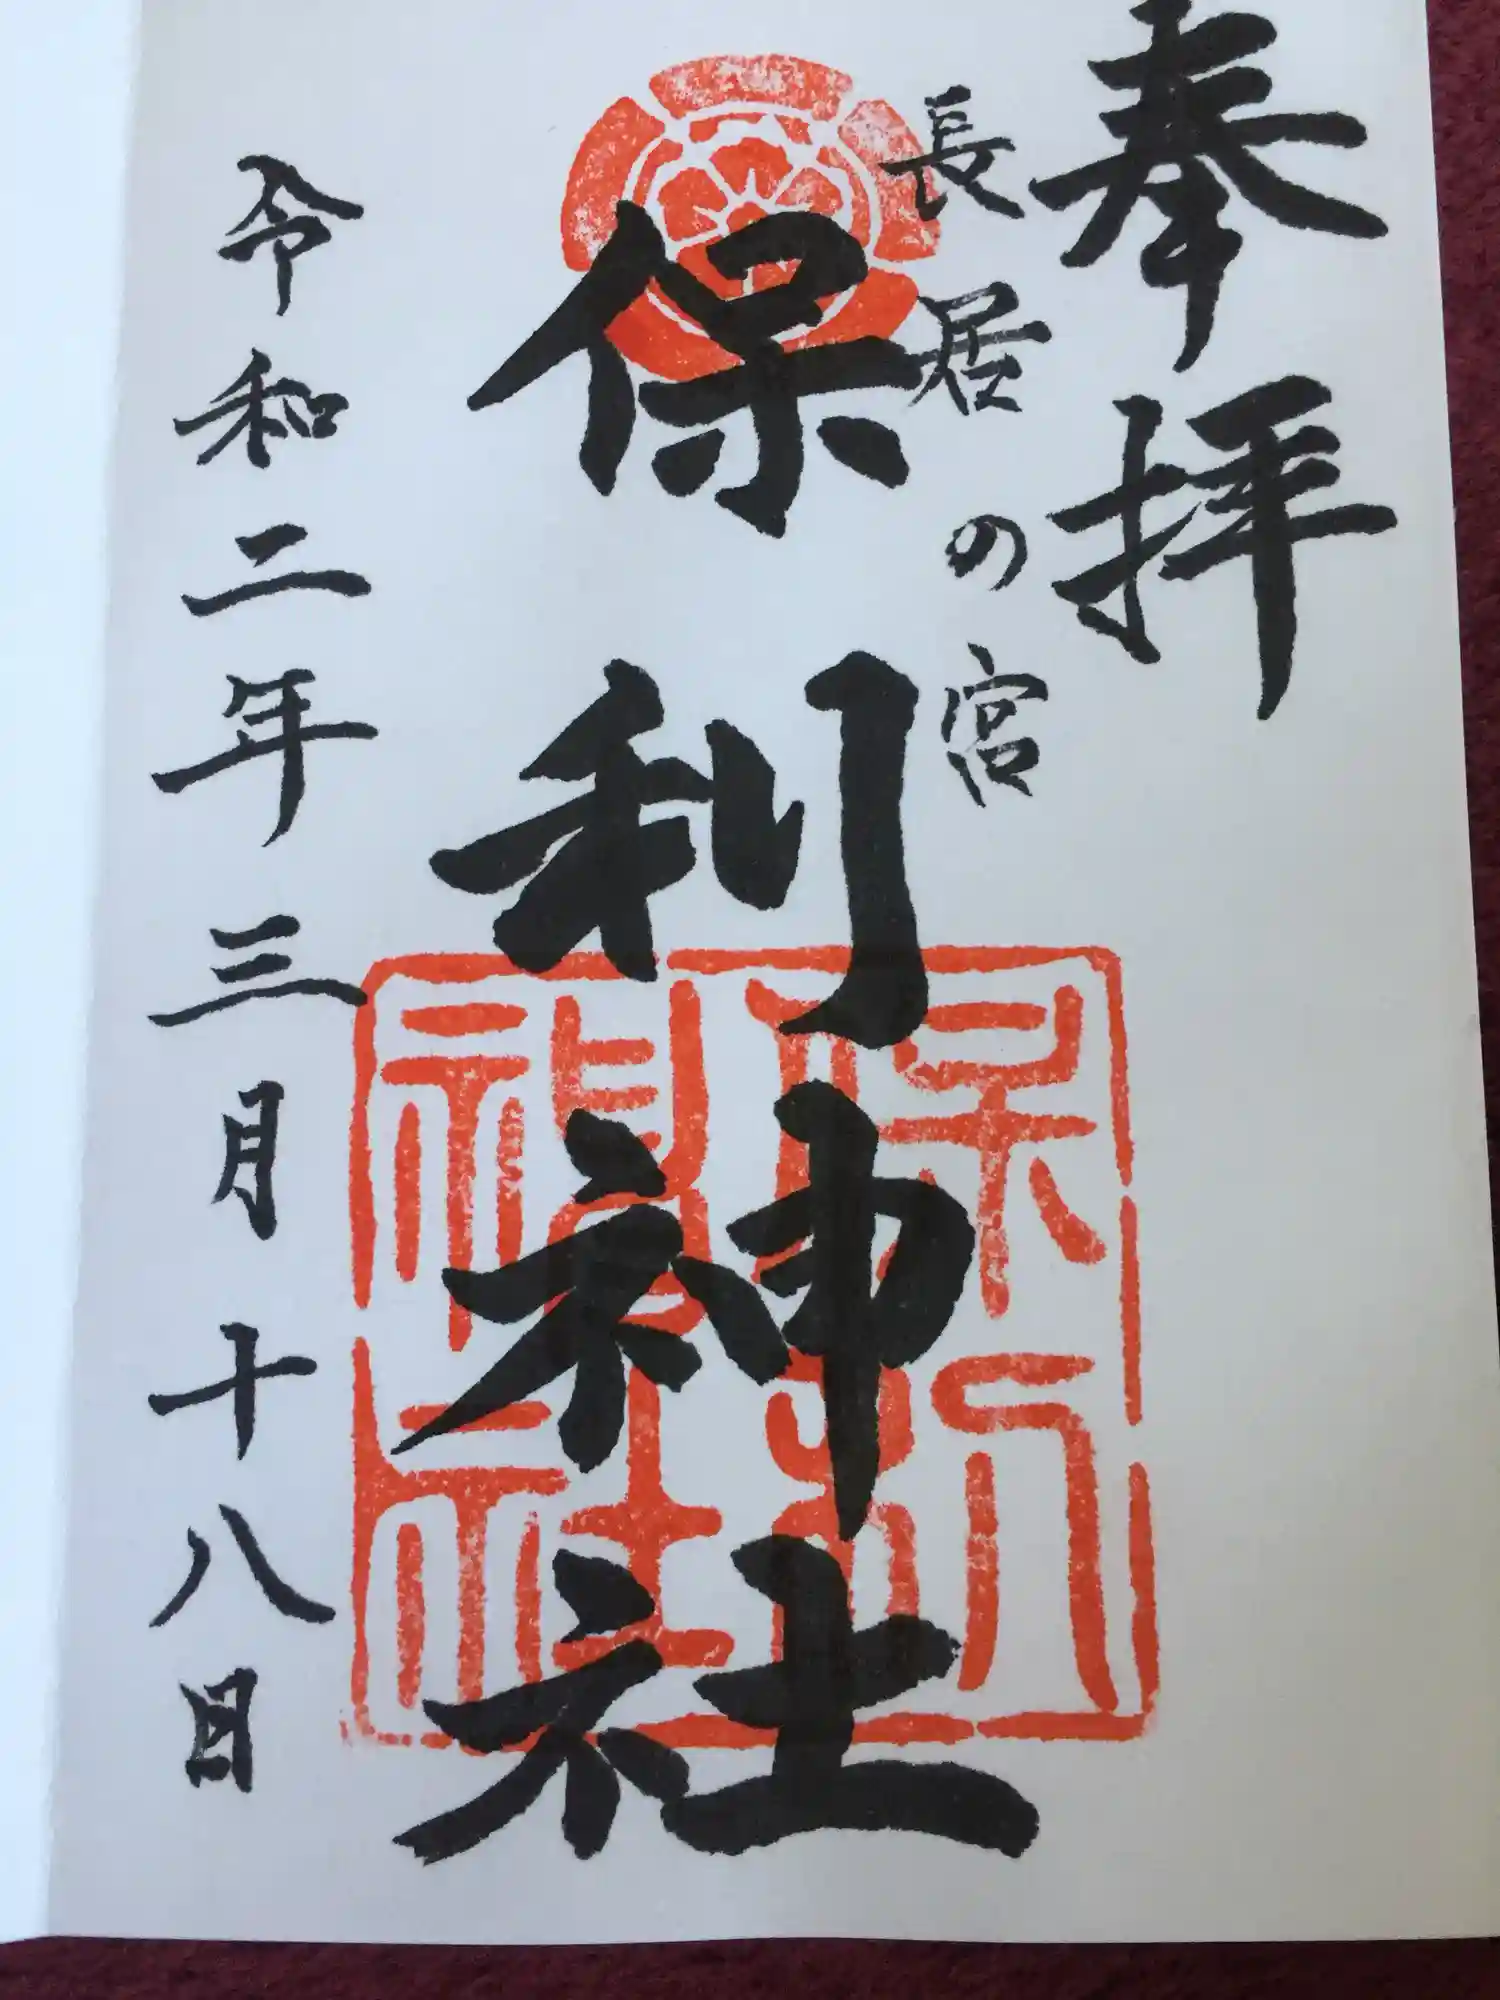 奉拝
長居の宮
保利神社
令和二年三月十八日
保利
神社